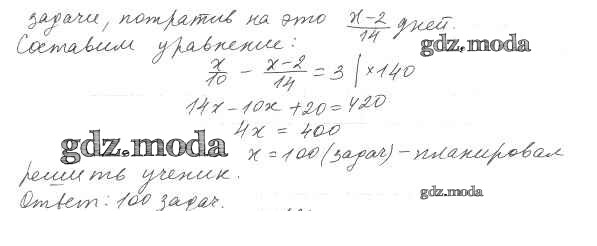 задачи, потратив на это (x-2)/14 дней.
Составим уравнение:
gdz.moda
x/10 - (x-2)/14 = 3 | ×140
14x-10x+20=420
4x = 400
gdz.moda
x=100 (задач) - планировал
решить ученик.
gdz.moda
Ответ: 100 задач.